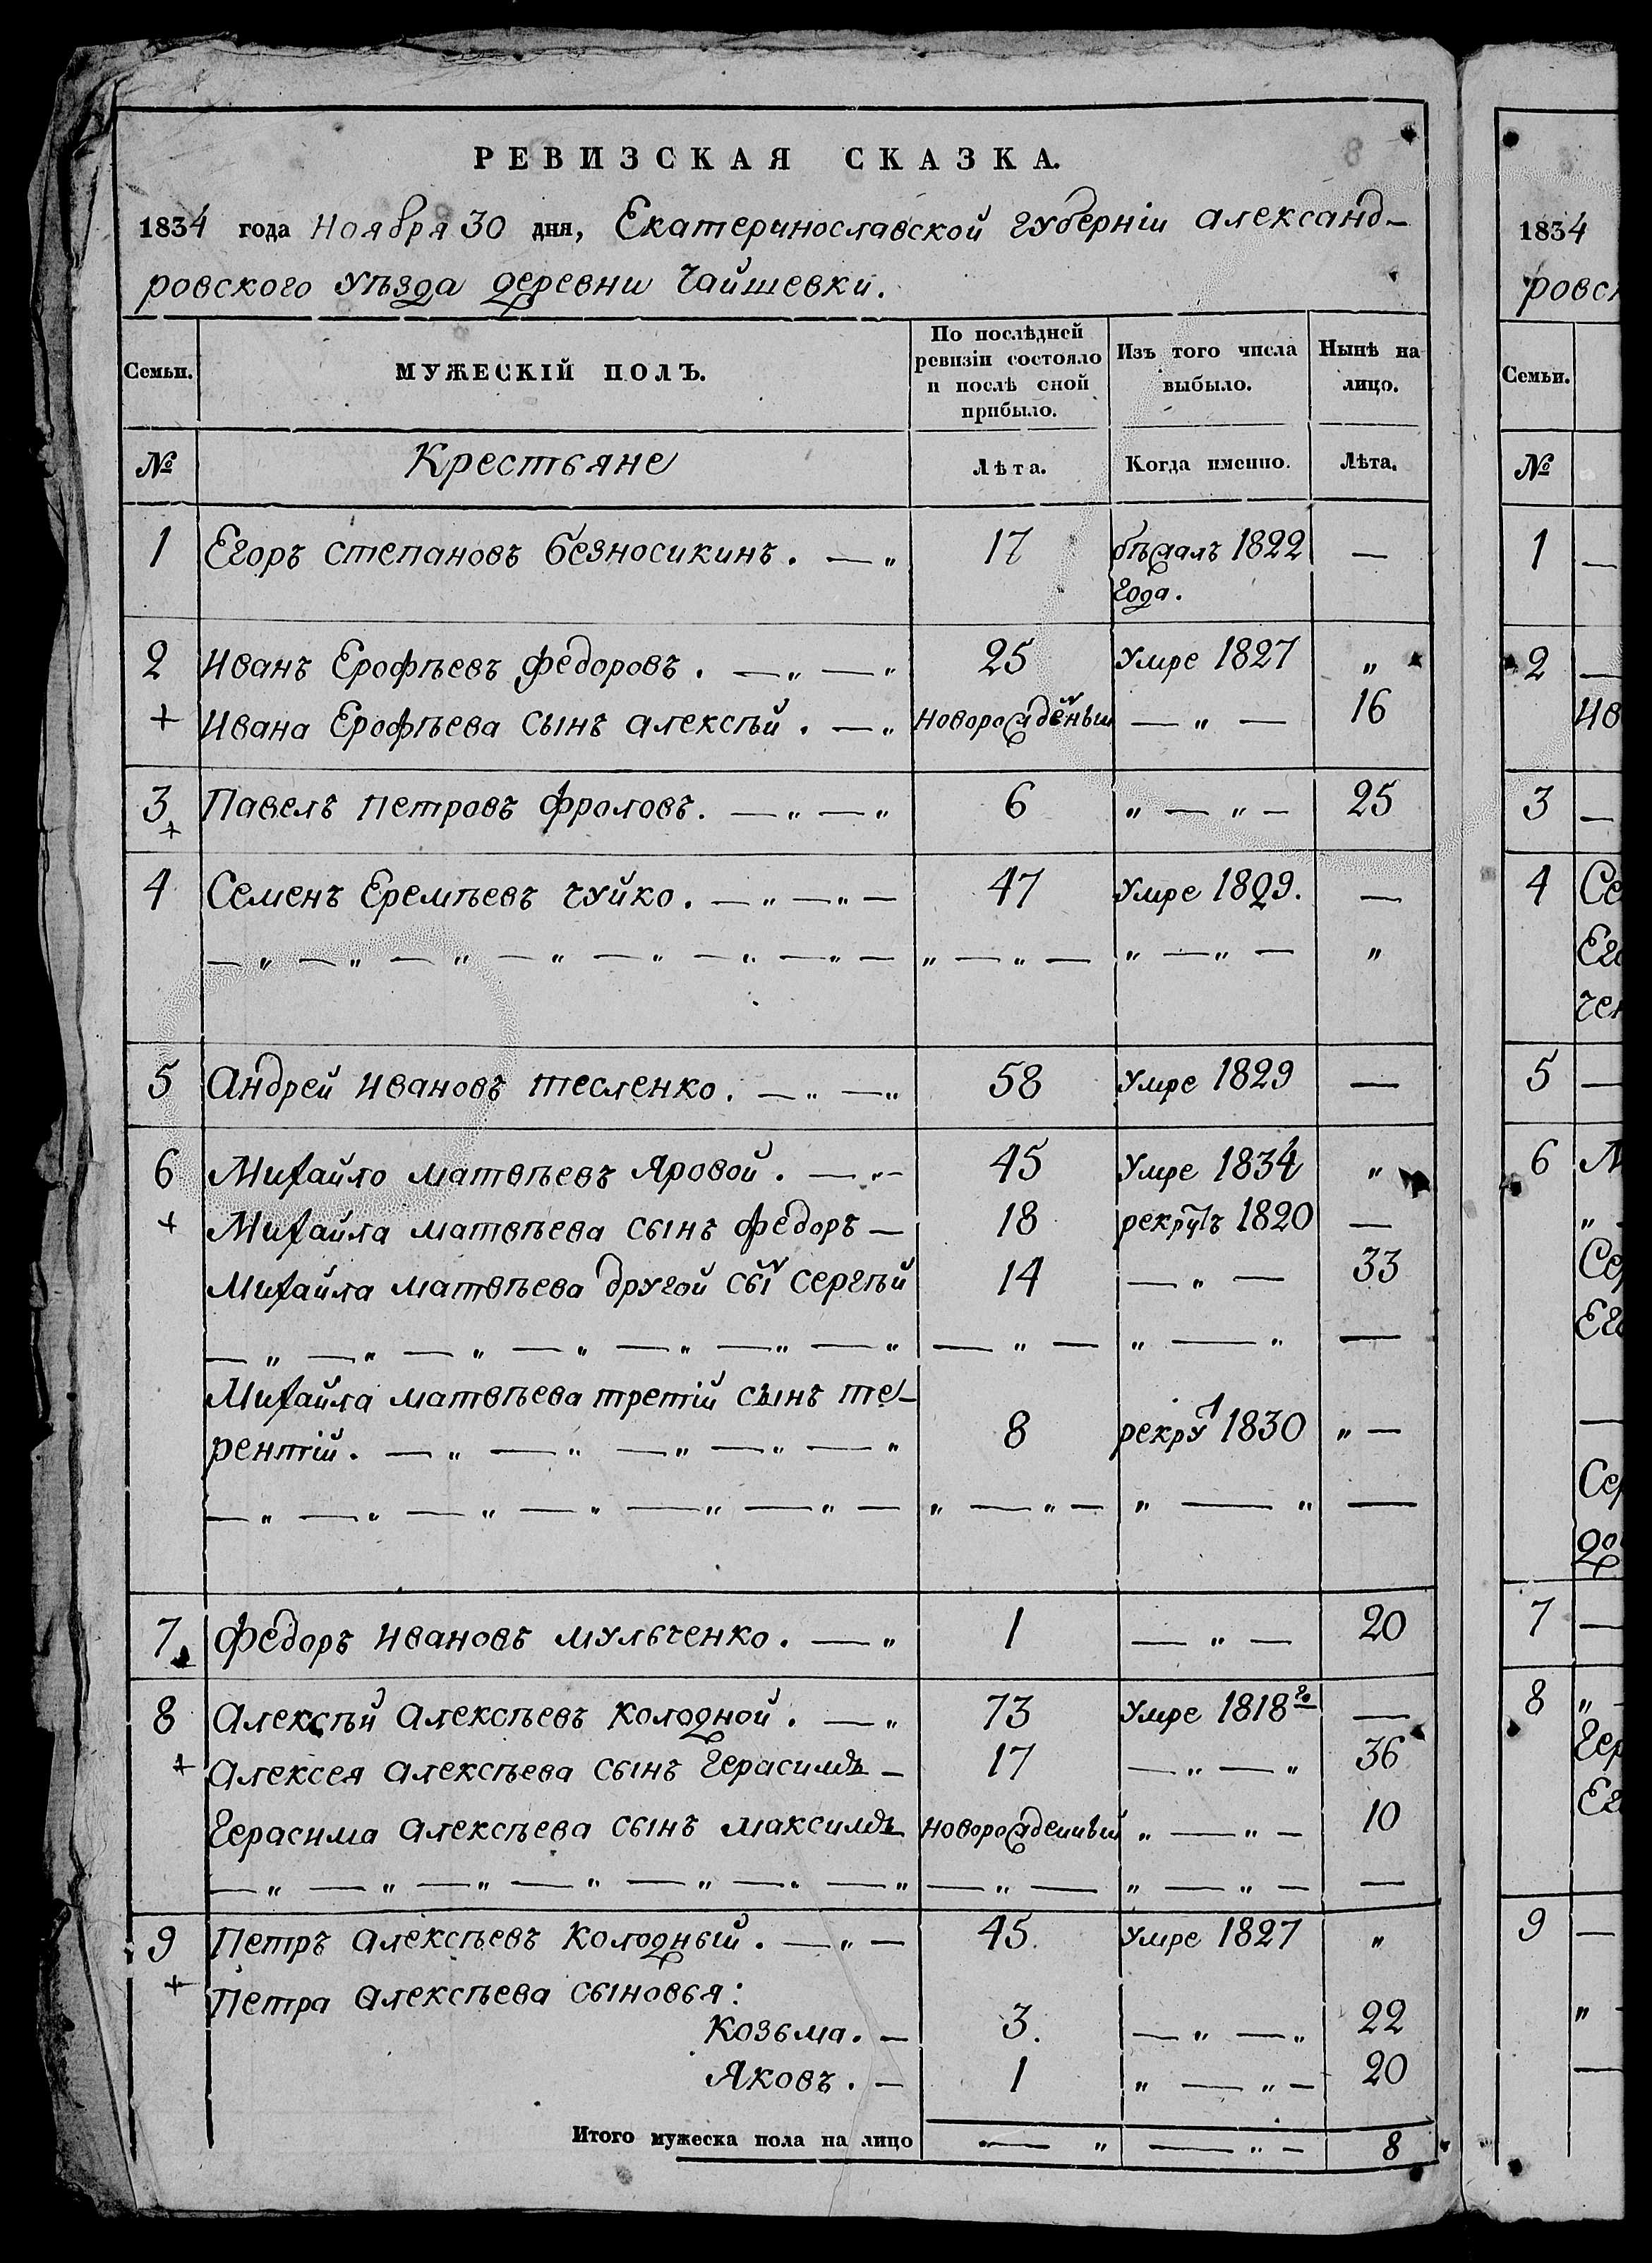 РЕВИЗСКАЯ СКАЗКА.
1834 года Ноября 30 дня, Екатеринославской губерніи александ-
ровского уѣзда деревни Чайшевки.
Семьи. МУЖЕСКІЙ ПОЛЪ. По послѣдней ревизіи состояло и послѣ сной прибыло. Изъ того числа выбыло. Нынѣ на лицо.
№ Крестьяне Лѣта. Когда именно. Лѣта.
1 Егоръ степановъ безносикинъ. — „ 17 бѣжалъ 1822 —
года.
2 Иванъ Ерофѣевъ федоровъ. — „ — „ 25 умре 1827 „
+ Ивана Ерофѣева сынъ алексѣй. — „ новорожденый — „ — 16
3 Павелъ петровъ фроловъ. — „ — „ 6 „ — „ — 25
+
4 Семенъ Еремѣевъ чуйко. — „ — „ — 47 умре 1829. —
— „ — „ — „ — „ — „ — „ — „ — „ — „ — „ — „ — „
5 андрей ивановъ тесленко. — „ — „ 58 умре 1829 —
6 Михайло матвѣевъ яровой. — „ — 45 умре 1834 „
+ Михайла матвѣева сынъ федоръ — 18 рекрутъ 1820 —
Михайла матвѣева другой сын сергѣй 14 — „ — 33
— „ — „ — „ — „ — „ — „ — „ — „ — „ — „ —
Михайла матвѣева третій сынъ те-
рентій. — „ — „ — „ — „ — „ 8 рекрут 1830 „ —
— „ — „ — „ — „ — „ — „ — „ — „ — „ — „ —
7 федоръ ивановъ мульченко. — „ 1 — „ — 20
8 Алексѣй алексѣевъ колодной. — „ 73 умре 1818го —
+ алексея алексѣева сынъ герасимъ — 17 — „ — „ 36
Герасима алексѣева сынъ максимъ новорожденный „ — „ — 10
— „ — „ — „ — „ — „ — „ — „ — „ — „ — „ — —
9 Петръ алексѣевъ колодный. — „ — 45. умре 1827 „
+ Петра алексѣева сыновья:
козьма. — 3. — „ — „ 22
яковъ. — 1 „ — „ — 20
Итого мужеска пола на лицо — „ — „ — 8
1834
ровск
Семьи.
№
1 —
2 —
Ив
3 —
4 Се
Его
5 —
6 М
„
Се
Ег
—
Се
7 —
8 „
Гер
Ег
9 —
„
—